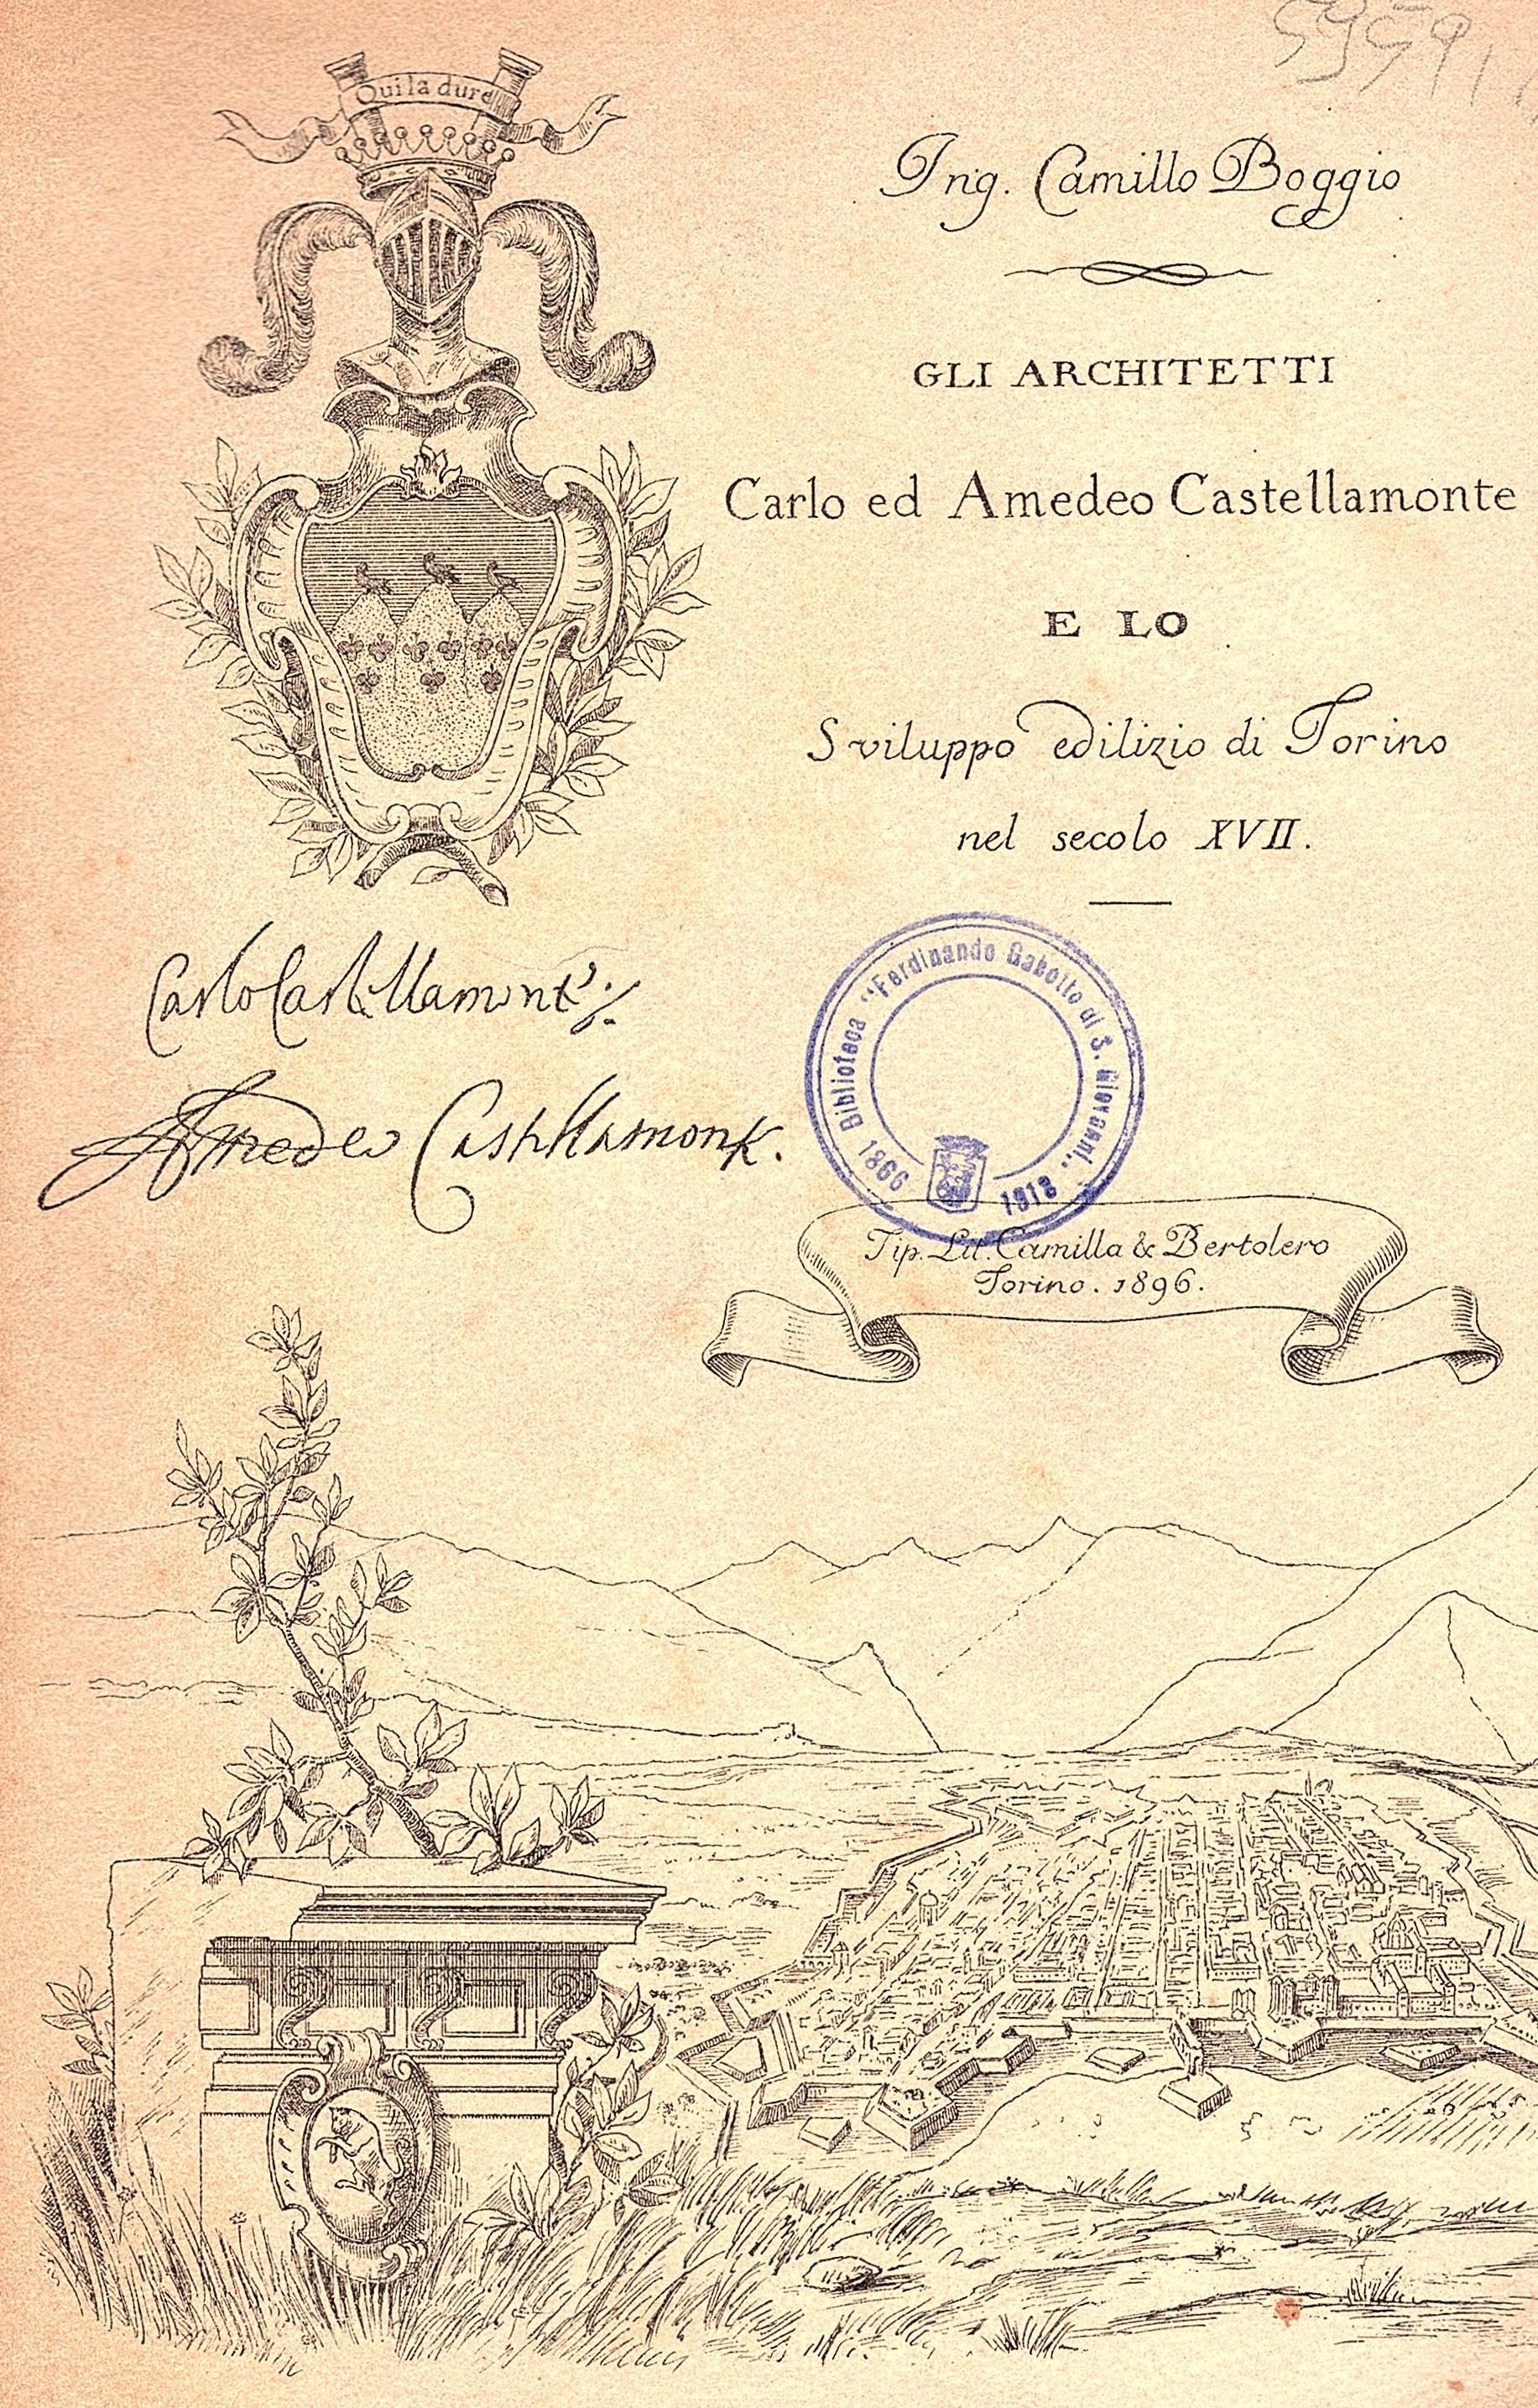 Qui la dure
Ing. Camillo Boggio
GLI ARCHITETTI
Carlo ed Amedeo Castellamonte
E LO
Sviluppo edilizio di Torino
nel secolo XVII.
Carlo Castellamonte
Amedeo Castellamonte.
Biblioteca "Ferdinando Gabotto di S. Giovanni"
1866 1918
Tip. Lit. Camilla & Bertolero
Torino. 1896.